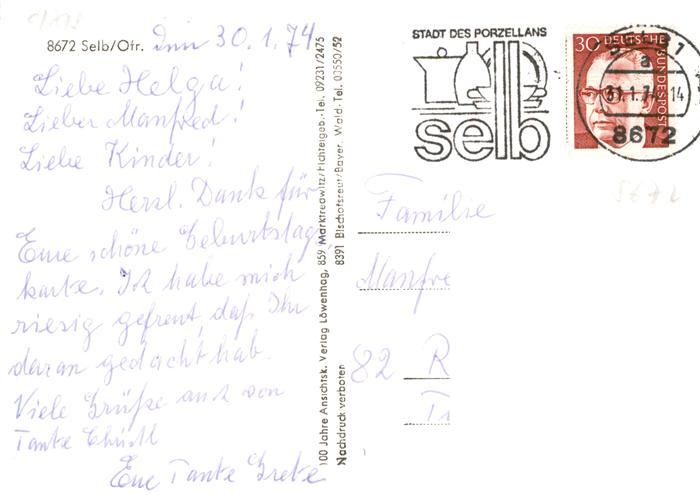 8672 Selb/Ofr. den 30. 1. 74
Liebe Helga!
Lieber Manfred!
Liebe Kinder!
Herzl. Dank für
Eure schöne Geburtstags
karte. Ich habe mich
riesig gefreut, daß Ihr
daran gedacht hab.
Viele Grüße auch von
Tante
Eure Tante Grete
100 Jahre Ansichtsk. Verlag Löwenhag, 859 Marktredwitz/Fichtelgeb.-Tel. 09231/2475
Nachdruck verboten 8391 Bischofsreut/Bayer. Wald-Tel. 03550/52
STADT DES PORZELLANS
selb
30 DEUTSCHE BUNDESPOST
SELB 1
a
31.1.74 14
8672
8672
Familie
Manfre
82 R